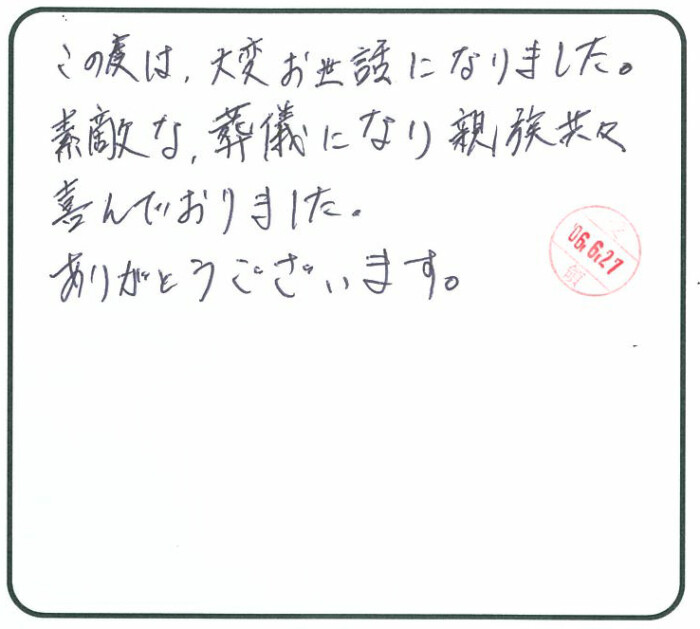 この度は,大変お世話になりました。
素敵な,葬儀になり親族共々
喜んでおりました。
ありがとうございます。
'06.6.27